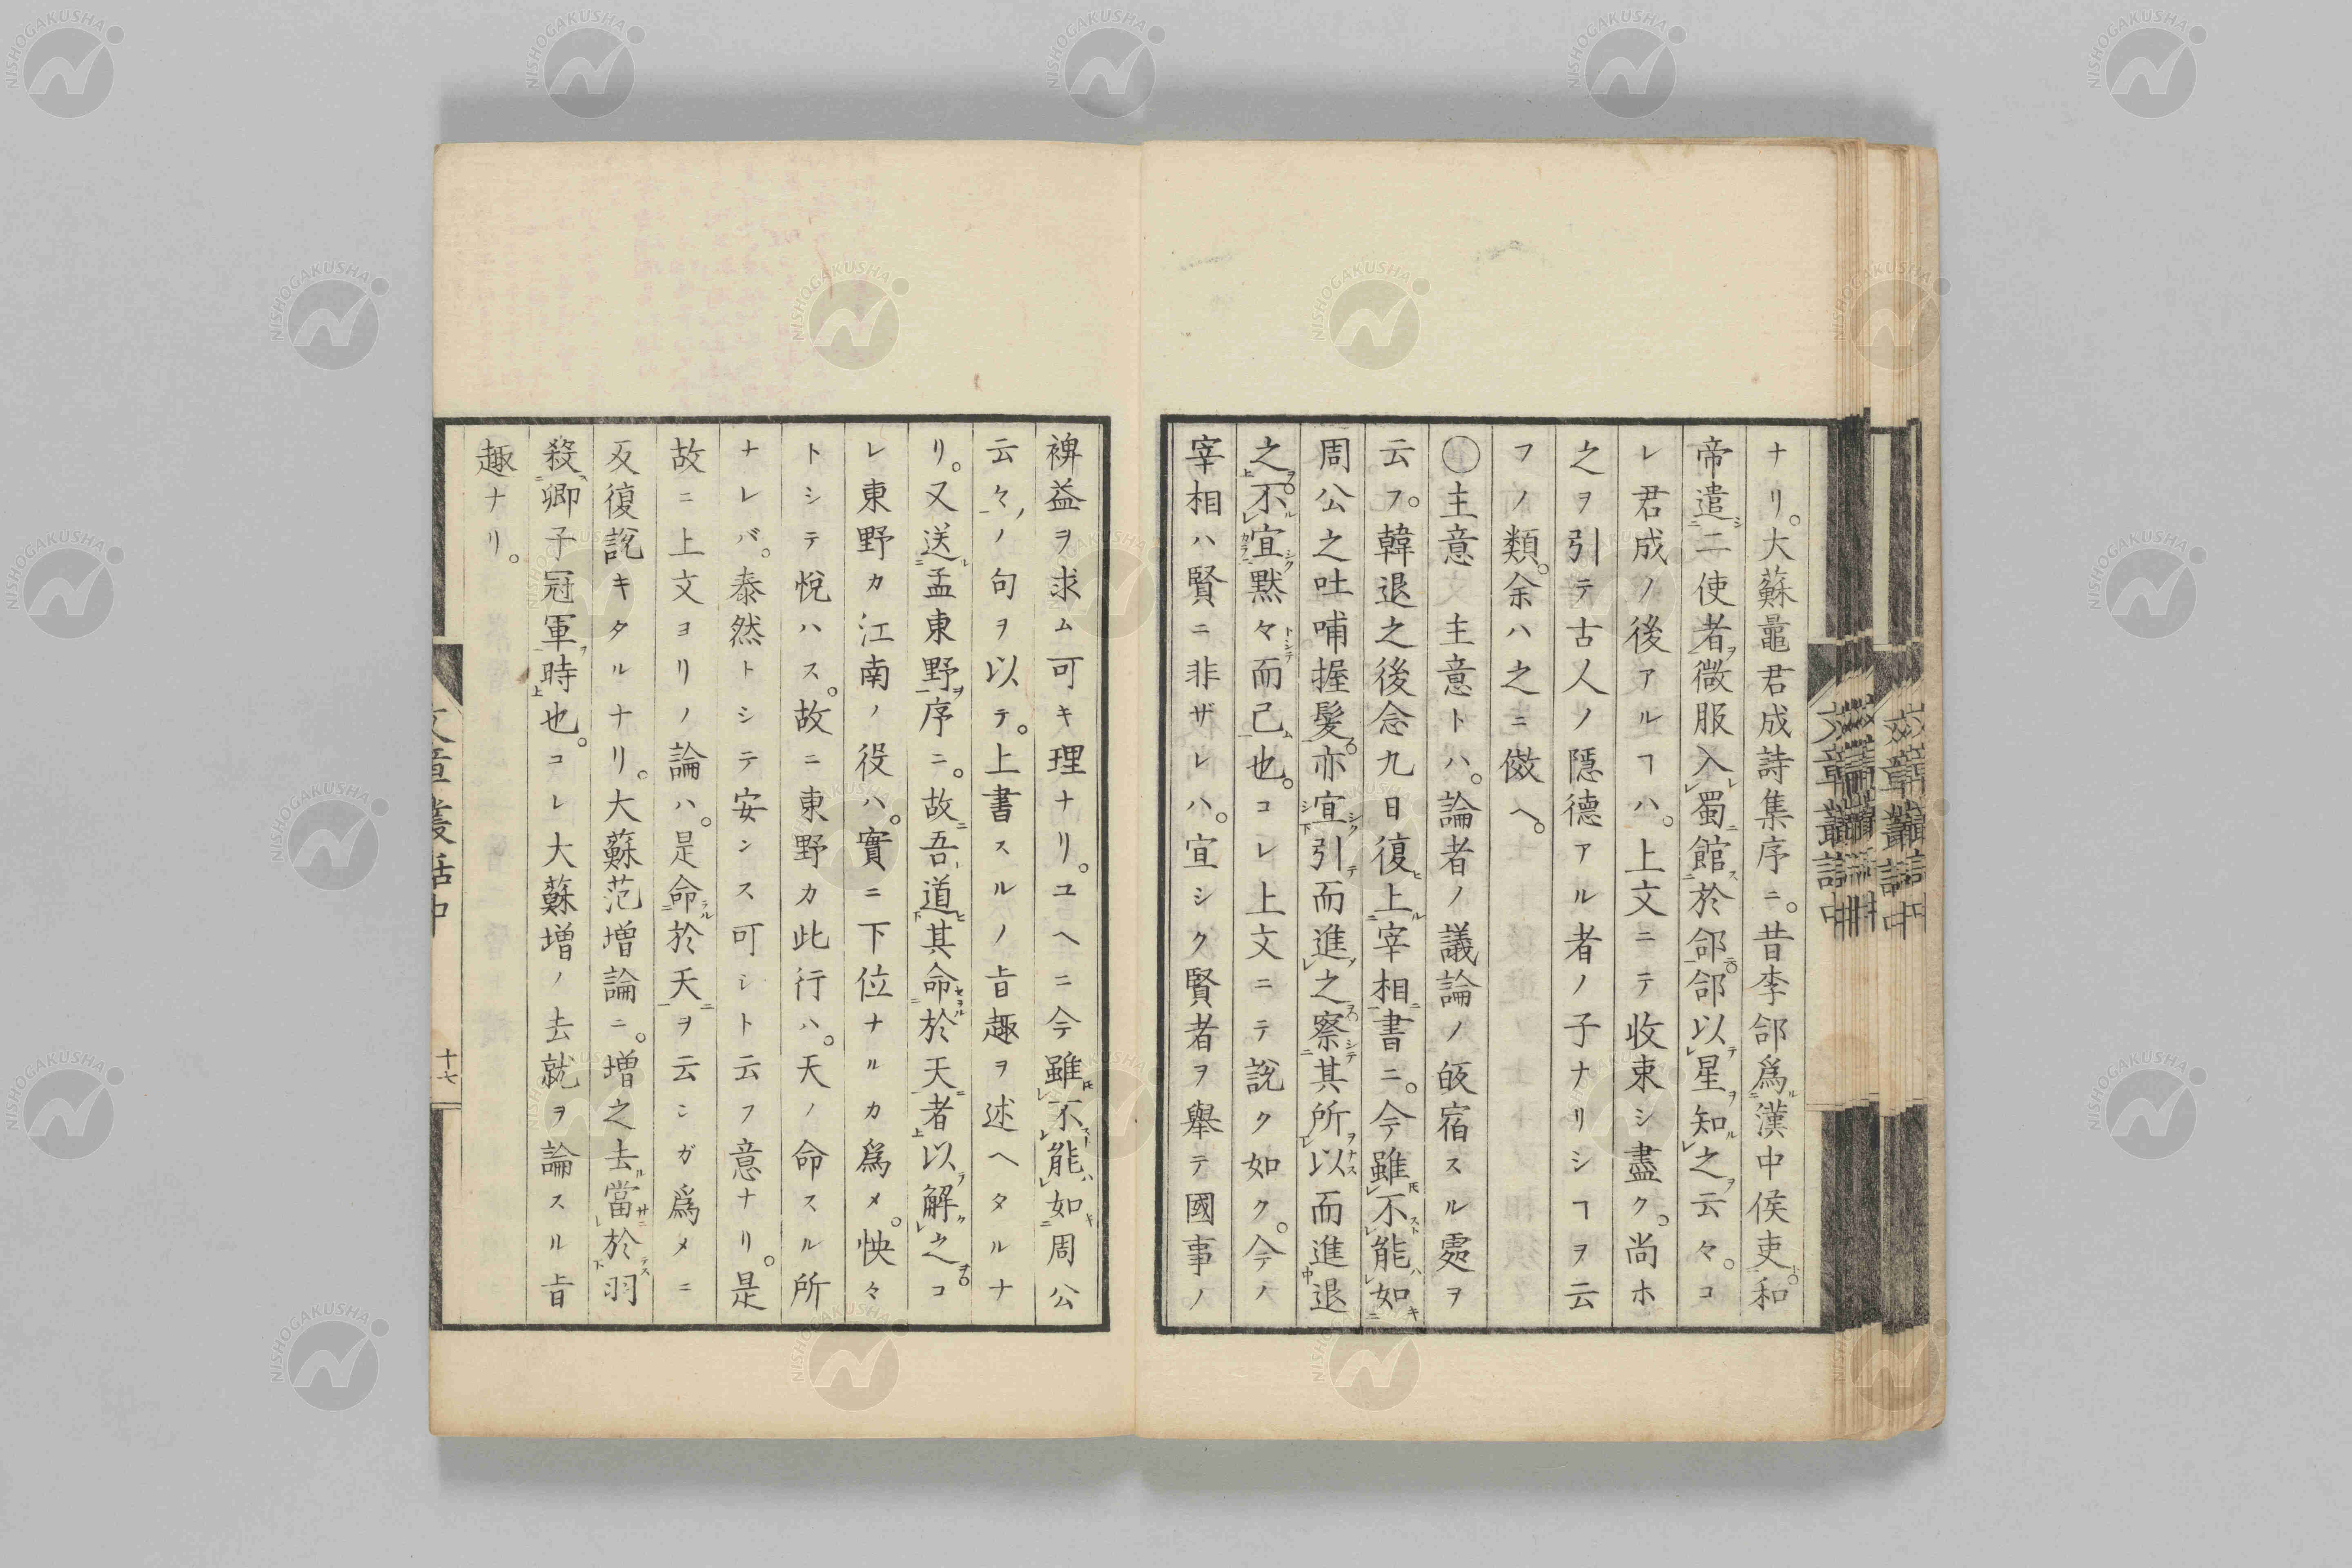 ナリ。大蘇鼂君成詩集序ニ。昔李郃爲漢中侯吏。和
帝遣二使者微服入蜀館於郃。郃以星知之云々。コ
レ君成ノ後アルヿハ。上文ニテ收束シ盡ク。尚ホ
之ヲ引テ古人ノ隱德アル者ノ子ナリシヿヲ云
フノ類。余ハ之ニ倣ヘ。
○主意　主意トハ。論者ノ議論ノ皈宿スル處ヲ
云フ。韓退之後念九日復上宰相書ニ。今雖不能如
周公之吐哺握髮。亦宜引而進之。察其所以而進退
之。不宜默々而已也。コレ上文ニテ説ク如ク。今ノ
宰相ハ賢ニ非ザレハ。宜シク賢者ヲ舉テ國事ノ
裨益ヲ求ム可キ理ナリ。ユヘニ今雖不能如周公
云々ノ句ヲ以テ。上書スルノ旨趣ヲ述ヘタルナ
リ。又送孟東野序ニ。故吾道其命於天者以解之。コ
レ東野カ江南ノ役ハ。實ニ下位ナルカ爲メ。怏々
トシテ悅ハス。故ニ東野カ此行ハ。天ノ命スル所
ナレバ。泰然トシテ安ンス可シト云フ意ナリ。是
故ニ上文ヨリノ論ハ。是命於天ヲ云ンガ爲メニ
反復説キタルナリ。大蘇范增論ニ。增之去當於羽
殺卿子冠軍時也。コレ大蘇增ノ去就ヲ論スル旨
趣ナリ。
文章叢話中
十七
NISHOGAKUSHA